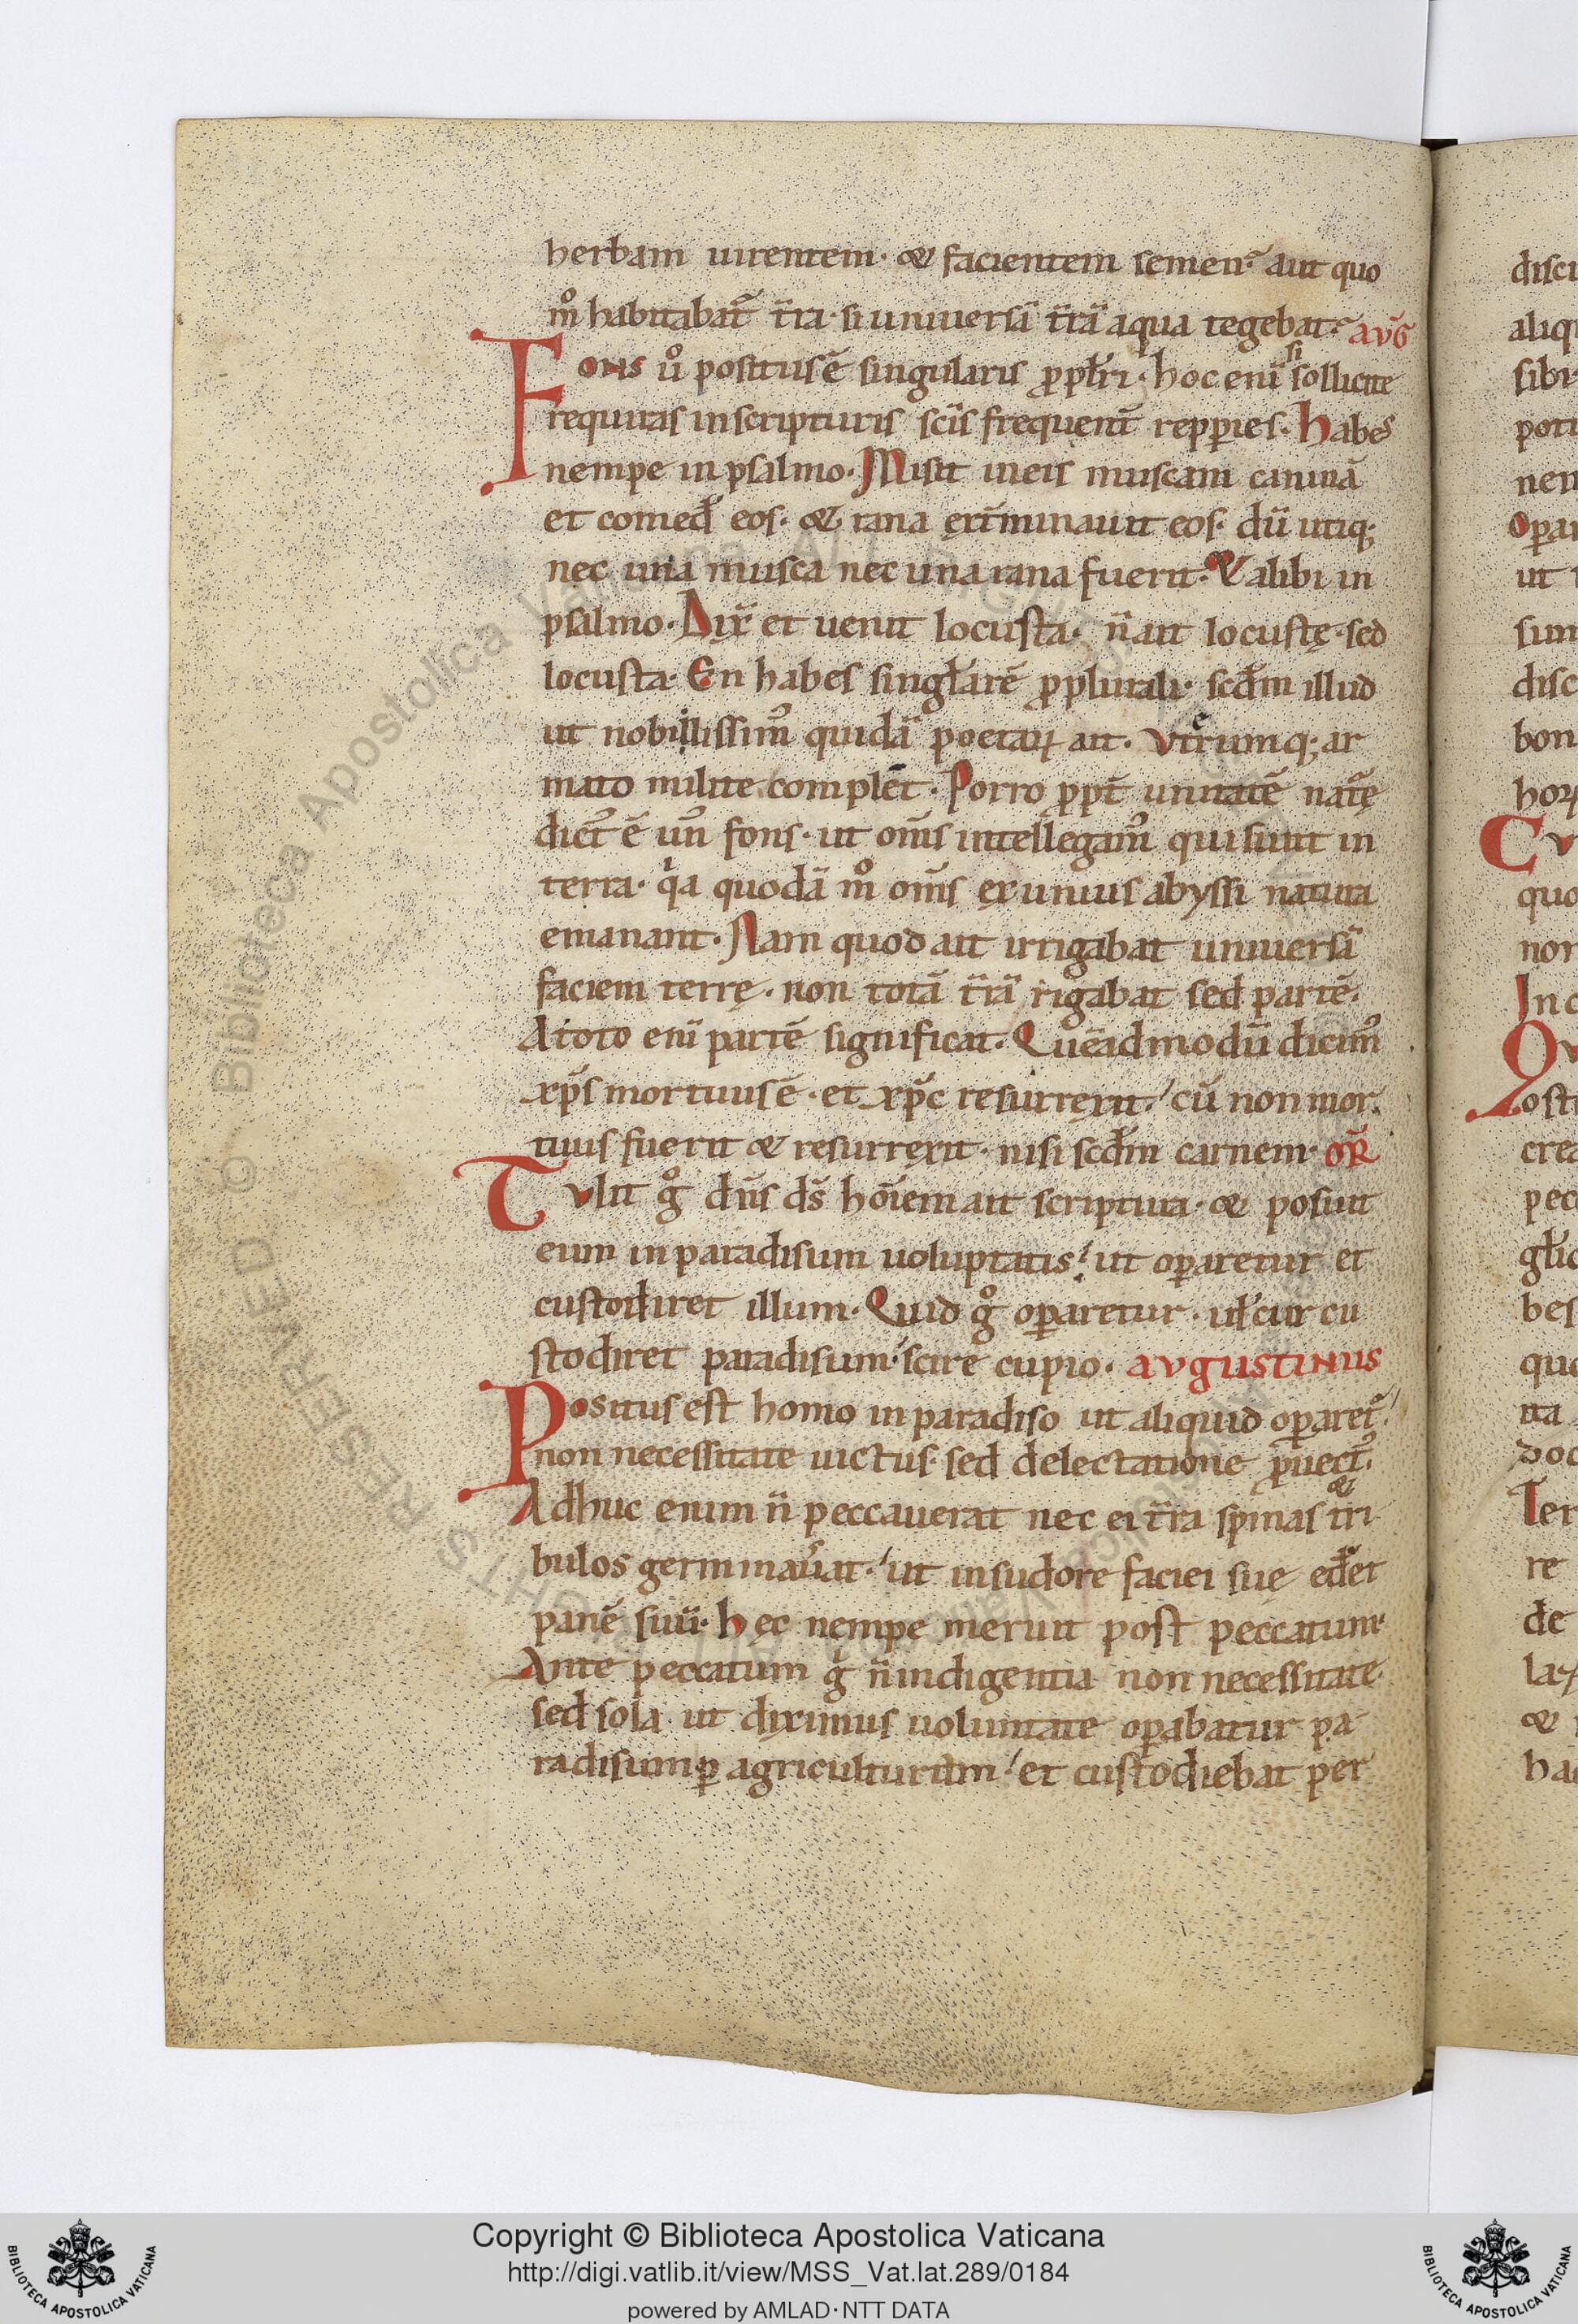 herbam uirentem· & facientem semen·̃ aut quo
m̊ habitabat̃ t̃ra· si uniuersā t̃rā aqua tegebat·̃ aūg
Fons ů positus ē singularis ꝓ pɫri· hoc eni si sollicite
requiras in scripturis sc̄is frequent̄ repꝑies· Habes
nempe in psalmo· Misit in eis muscam caninā
et comed̄ eos· & rana ext̄minauit eos· dū utiq;
nec una musca nec una rana fuerit· & alibi in
psalmo· Dix̃ et uenit locusta· n̄ ait locustę· sed
locusta· En habes singɫarē ꝓ plurali· scd̄m illud
ut nobillissim᾽ quidā poetaꝝ ait· Vterumq; ar
mato milite complēt· Porro ꝓpt̄ unitatē nat̄ę
dict᾽ ē un᾽ fons· ut om̄s intellegam᾽ qui sunt in
terra· qͥa quodā m̊ om̄s ex unius abyssi natura
emanant· Nam quod ait irrigabat uniuersā
faciem terrę· non totā t̃rā rigabat sed partē·
A toto enī partē significat· Quēadmodū dicim᾽
xp̄s mortuus ē· et xp̄c resurrexit· cū non mor
tuus fuerit & resurrexit· nisi scd̄m carnem· OR̄
Tulit g̊ dn̄s ds̄ hoīem ait scriptura· & posuit
eum in paradisum uoluptatis· ut oꝑaretur et
custodiret illum· Quid g̊ oꝑaretur· uɫ cur cu
stodiret paradisum· scire cupio· AVGUSTINUS
Positus est homo in paradiso ut aliquid oꝑaret̃·
non necessitate uictus· sed delectatione ꝓuect᾽·
Adhuc enim n̄ peccauerat nec ei t̃ra spinas & tri
bulos germinau̾at· ut in sudore faciei suę ed̾et
panē suū· hęc nempe meruit post peccatum·
Ante peccatum g̊ n̄ indigentia non necessitate·
sed sola ut diximus uoluntate oꝑabatur pa
radisum ꝑ agriculturam· et custodiebat per
disci
aliq
sibi
poti
nem
opar
ut
sum
disc
bon
hoꝝ
Cu
quo
non
In
Qu
osti
crea
pec
gɫic
bes
que
ita
doc
Ter
re
de
la
&
ha
Biblioteca Apostolica Vaticana
© Biblioteca Apostolica Vaticana ALL RIGHTS RESERVED
Copyright © Biblioteca Apostolica Vaticana
http://digi.vatlib.it/view/MSS_Vat.lat.289/0184
powered by AMLAD·NTT DATA
BIBLIOTECA APOSTOLICA VATICANA
BIBLIOTECA APOSTOLICA VATICANA